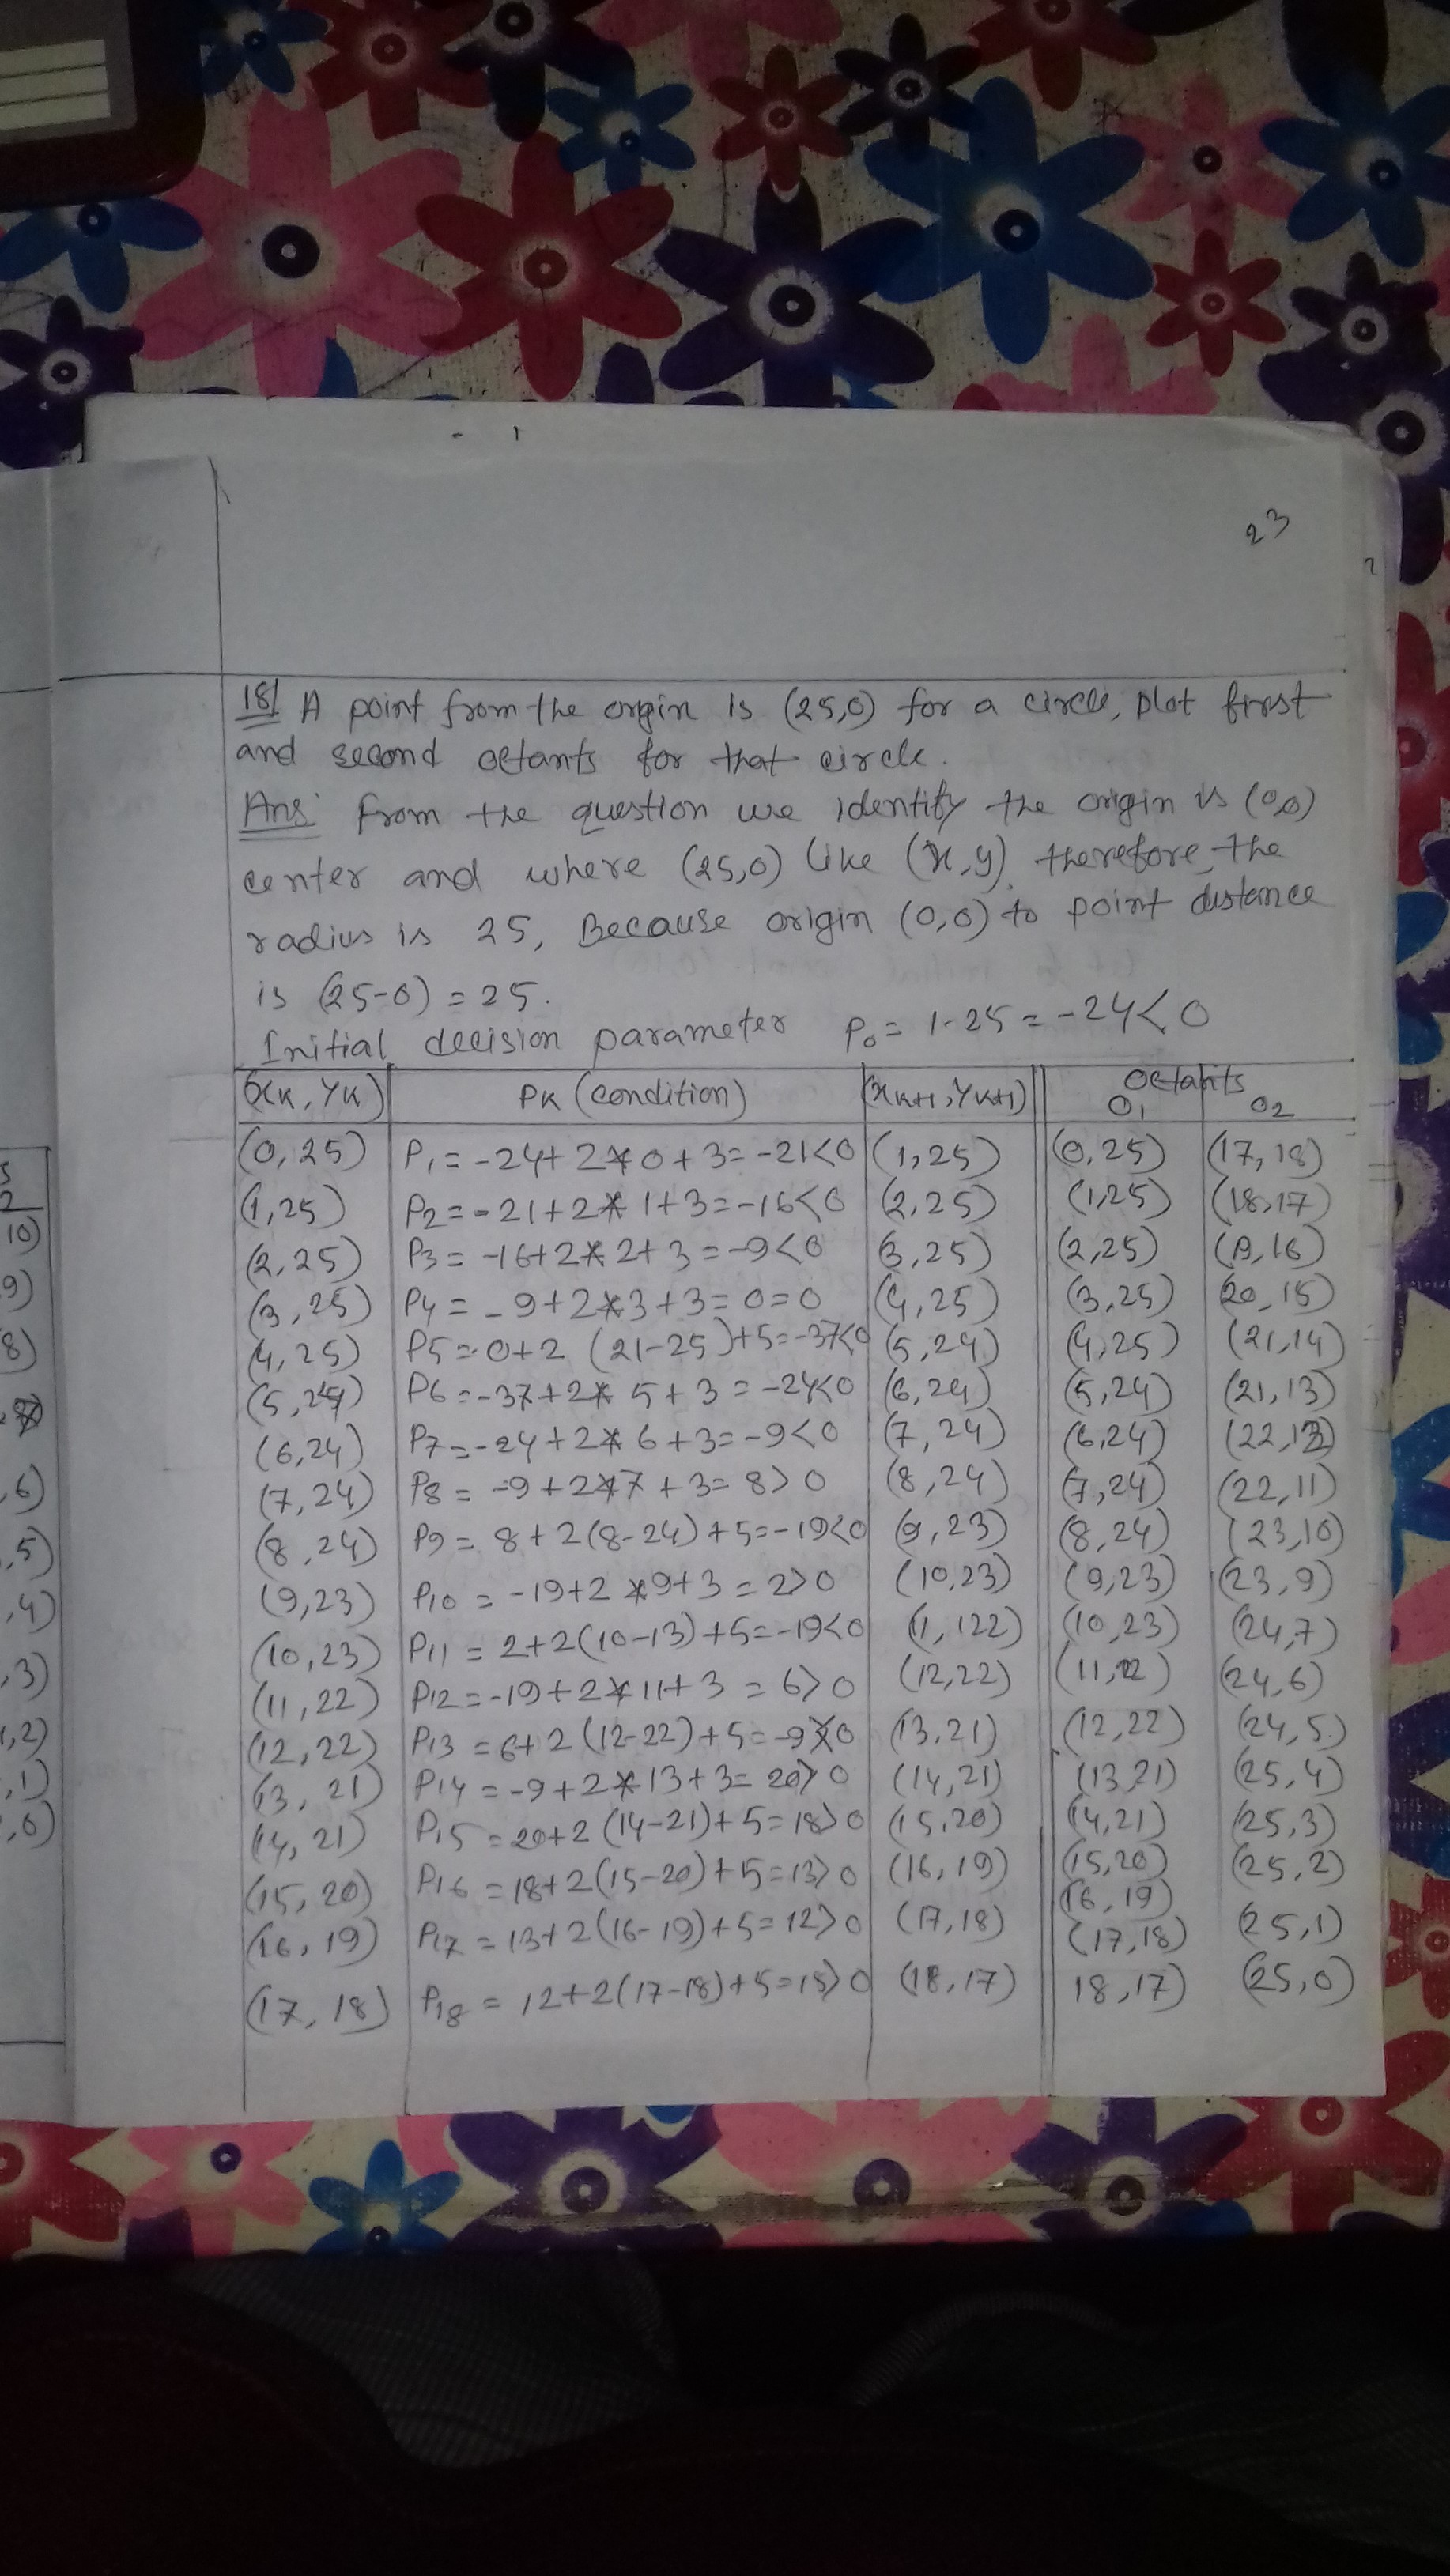 23
18) A point from the origin is (25,0) for a circle, plot first
and second octants for that circle.
Ans: from the question we identify the origin is (0,0)
center and where (25,0) like (x,y), therefore, the
radius is 25, Because origin (0,0) to point distance
is (25-0) = 25.
Initial decision parameter P0 = 1-25 = -24 < 0
(XK, YK) PK (condition) (XK+1, YK+1) Octants
O1 O2
(0,25) P1 = -24+2*0+3 = -21<0 (1,25) (0,25) (17,18)
(1,25) P2 = -21+2*1+3 = -16<0 (2,25) (1,25) (18,17)
(2,25) P3 = -16+2*2+3 = -9<0 (3,25) (2,25) (19,16)
(3,25) P4 = -9+2*3+3 = 0=0 (4,25) (3,25) (20,15)
(4,25) P5 = 0+2 (21-25)+5 = -37<0 (5,24) (4,25) (21,14)
(5,24) P6 = -37+2*5+3 = -24<0 (6,24) (5,24) (21,13)
(6,24) P7 = -24+2*6+3 = -9<0 (7,24) (6,24) (22,12)
(7,24) P8 = -9+2*7+3 = 8>0 (8,24) (7,24) (22,11)
(8,24) P9 = 8+2(8-24)+5 = -19<0 (9,23) (8,24) (23,10)
(9,23) P10 = -19+2*9+3 = 2>0 (10,23) (9,23) (23,9)
(10,23) P11 = 2+2(10-13)+5 = -19<0 (1,122) (10,23) (24,7)
(11,22) P12 = -19+2*11+3 = 6>0 (12,22) (11,22) (24,6)
(12,22) P13 = 6+2(12-22)+5 = -9<0 (13,21) (12,22) (24,5)
(13,21) P14 = -9+2*13+3 = 20>0 (14,21) (13,21) (25,4)
(14,21) P15 = 20+2(14-21)+5 = 18>0 (15,20) (14,21) (25,3)
(15,20) P16 = 18+2(15-20)+5 = 13>0 (16,19) (15,20) (25,2)
(16,19)
(16,19) P17 = 13+2(16-19)+5 = 12>0 (17,18) (17,18) (25,1)
(17,18) P18 = 12+2(17-18)+5 = 15>0 (18,17) 18,17) (25,0)
10)
9)
8)
,6)
,5)
,4)
,3)
1,2)
,1)
,0)